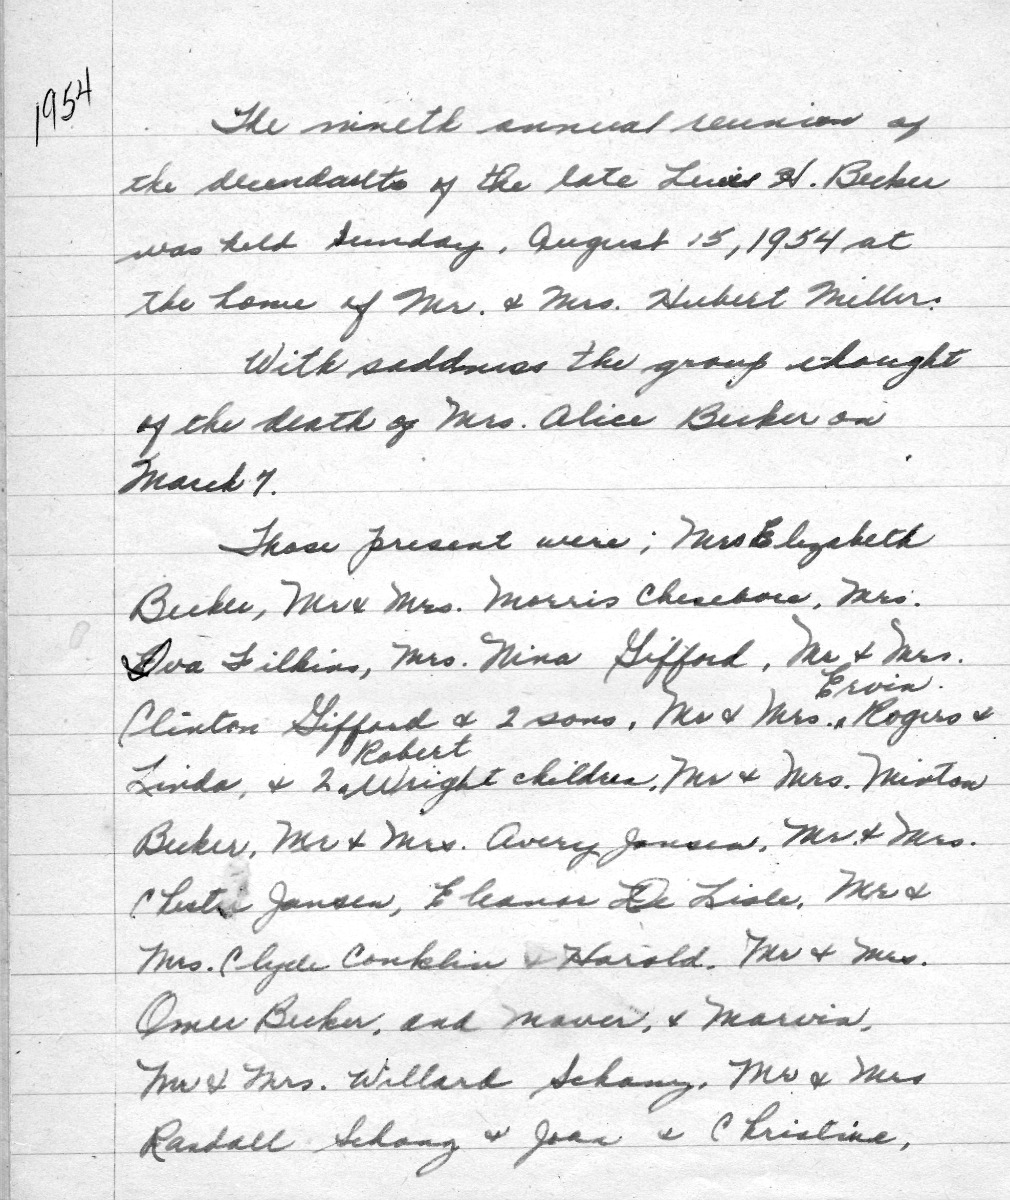 1954
The nineth annual reunion of
the decendants of the late Lewis H. Becker
was held Sunday, August 15, 1954 at
the home of Mr. & Mrs. Hubert Miller.
With saddness the group thought
of the death of Mrs. Alice Becker on
March 7.
Those present were; Mrs Elizabeth
Becker, Mr & Mrs. Morris Chesebore, Mrs.
Eva Filkins, Mrs. Nina Gifford, Mr & Mrs.
Ervin.
Clinton Gifford & 2 sons, Mr & Mrs. Rogers &
Robert
Linda, & 2 Wright children, Mr & Mrs. Minton
Becker, Mr & Mrs. Avery Jansen, Mr. & Mrs.
Chester Jansen, Eleanor De Lisle, Mr &
Mrs. Clyde Conklin & Harold, Mr & Mrs.
Omer Becker, and & Marvin,
Mr & Mrs. Willard Schany, Mr & Mrs
Randall Schany & Joan & Christine,